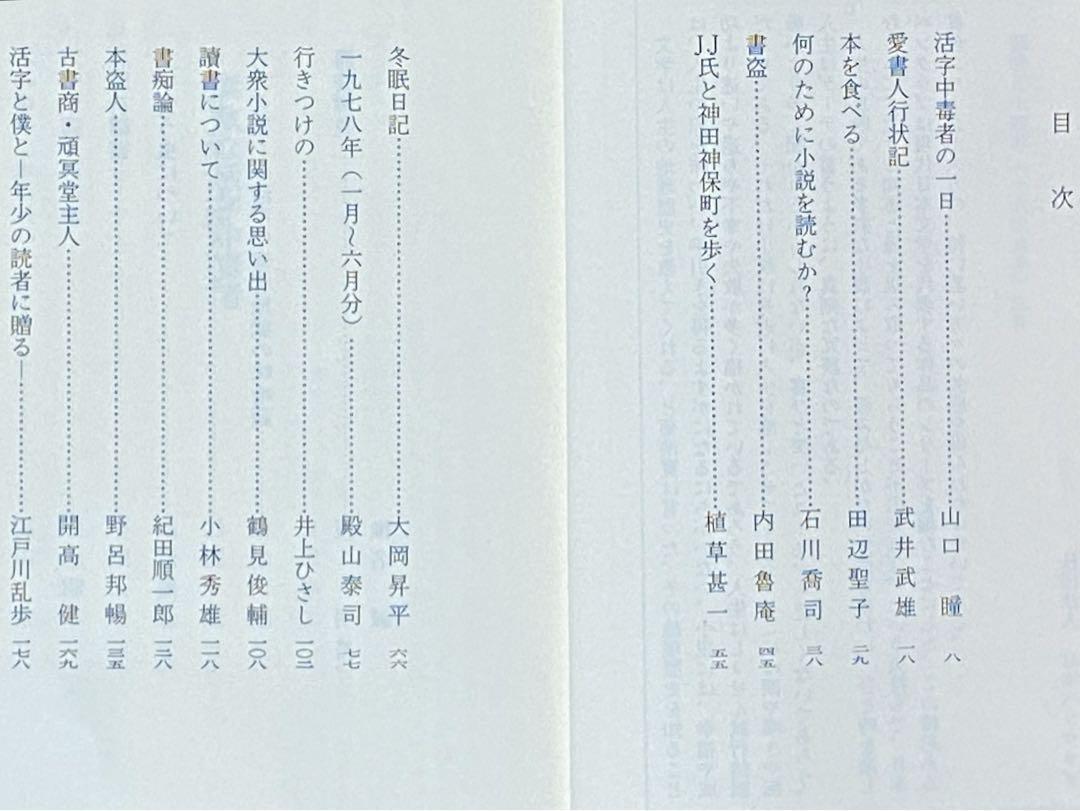 目次
活字中毒者の一日……………山口 瞳 八
愛書人行状記……………武井武雄 一八
本を食べる……………田辺聖子 二九
何のために小説を読むか?……………石川喬司 三八
書盗……………内田魯庵 四五
J・J氏と神田神保町を歩く……………植草甚一 五五
冬眠日記……………大岡昇平 六六
一九七八年(一月〜六月分)……………殿山泰司 七七
行きつけの……………井上ひさし 一〇二
大衆小説に関する思い出……………鶴見俊輔 一〇八
讀書について……………小林秀雄 一一八
書痴論……………紀田順一郎 一二八
本盗人……………野呂邦暢 一三五
古書商・頑冥堂主人……………開高 健 一六九
活字と僕と―年少の読者に贈る―……………江戸川乱歩 一七八